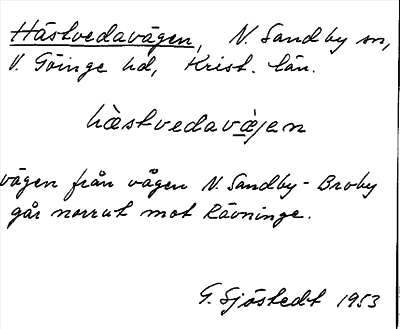 Hästvedavägen, N. Sandby sn,
V. Göinge hd, Krist. län.
hàstvedavæ̀jen
vägen från vägen N. Sandby - Broby
går norrut mot Rävninge.
G. Sjöstedt 1953